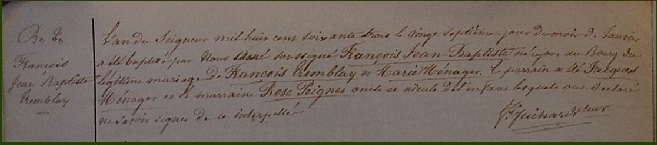 B. 
François
Jean Baptiste
Tremblay
L'an du Seigneur mil huit cent soixante trois le vingt septième jour du mois de Janvier
a été baptisé par Nous Curé soussigné François Jean-Baptiste né au Bourg du
légitime mariage de François Tremblay et Marie Ménager. Le parrain a été Jacques
Ménager et la marraine Rose Teignes oncle et aïeule de l'enfant lesquels ont déclaré
ne savoir signer de ce interpellé